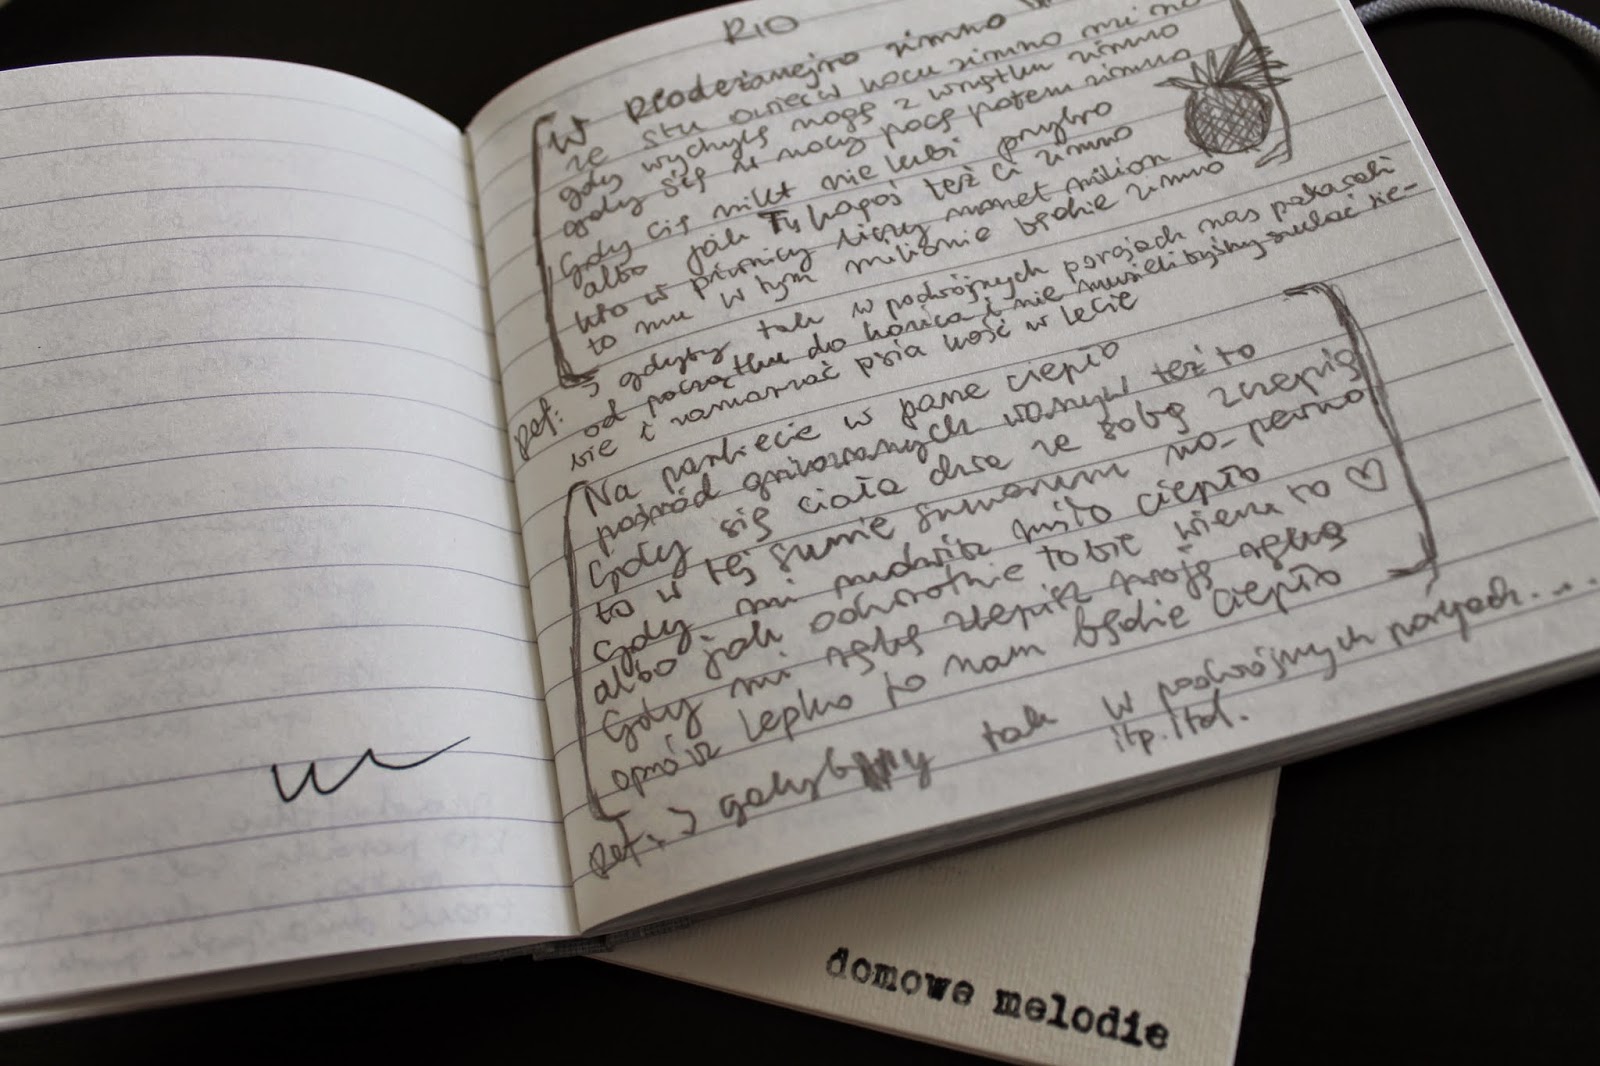 RIO
W Riodeżanejro zimno
ze stu owiec w kocu zimno mi no
gdy wychylę nogę z wyrtku zimno
gdy się w nocy pocę potem zimno
Gdy cię nikt nie lubi przykro
albo jak Ty kogoś też ci zimno
kto w piwnicy liczy monet milion
to mu w tym milionie będzie zimno
Ref: I gdyby tak w podwójnych porcjach nas pakowali
od początku do końca i nie musielibyśmy szukać sie-
bie i zamarzać
kość w lecie
Na parkiecie w parze ciepło
pośród gniazdowych też to
Gdy się ciała dwa ze sobą zczepią
to w tej sumie sumarum no-pewno
Gdy mi mówisz miło ciepło
albo jak odwrotnie tobie wiem to ♡
Gdy mi rękę zlepisz swoją ręką
oprócz lepko to nam będzie ciepło
Ref: I gdyby tak w podwójnych porcjach....
itp. itd.
domowe melodie